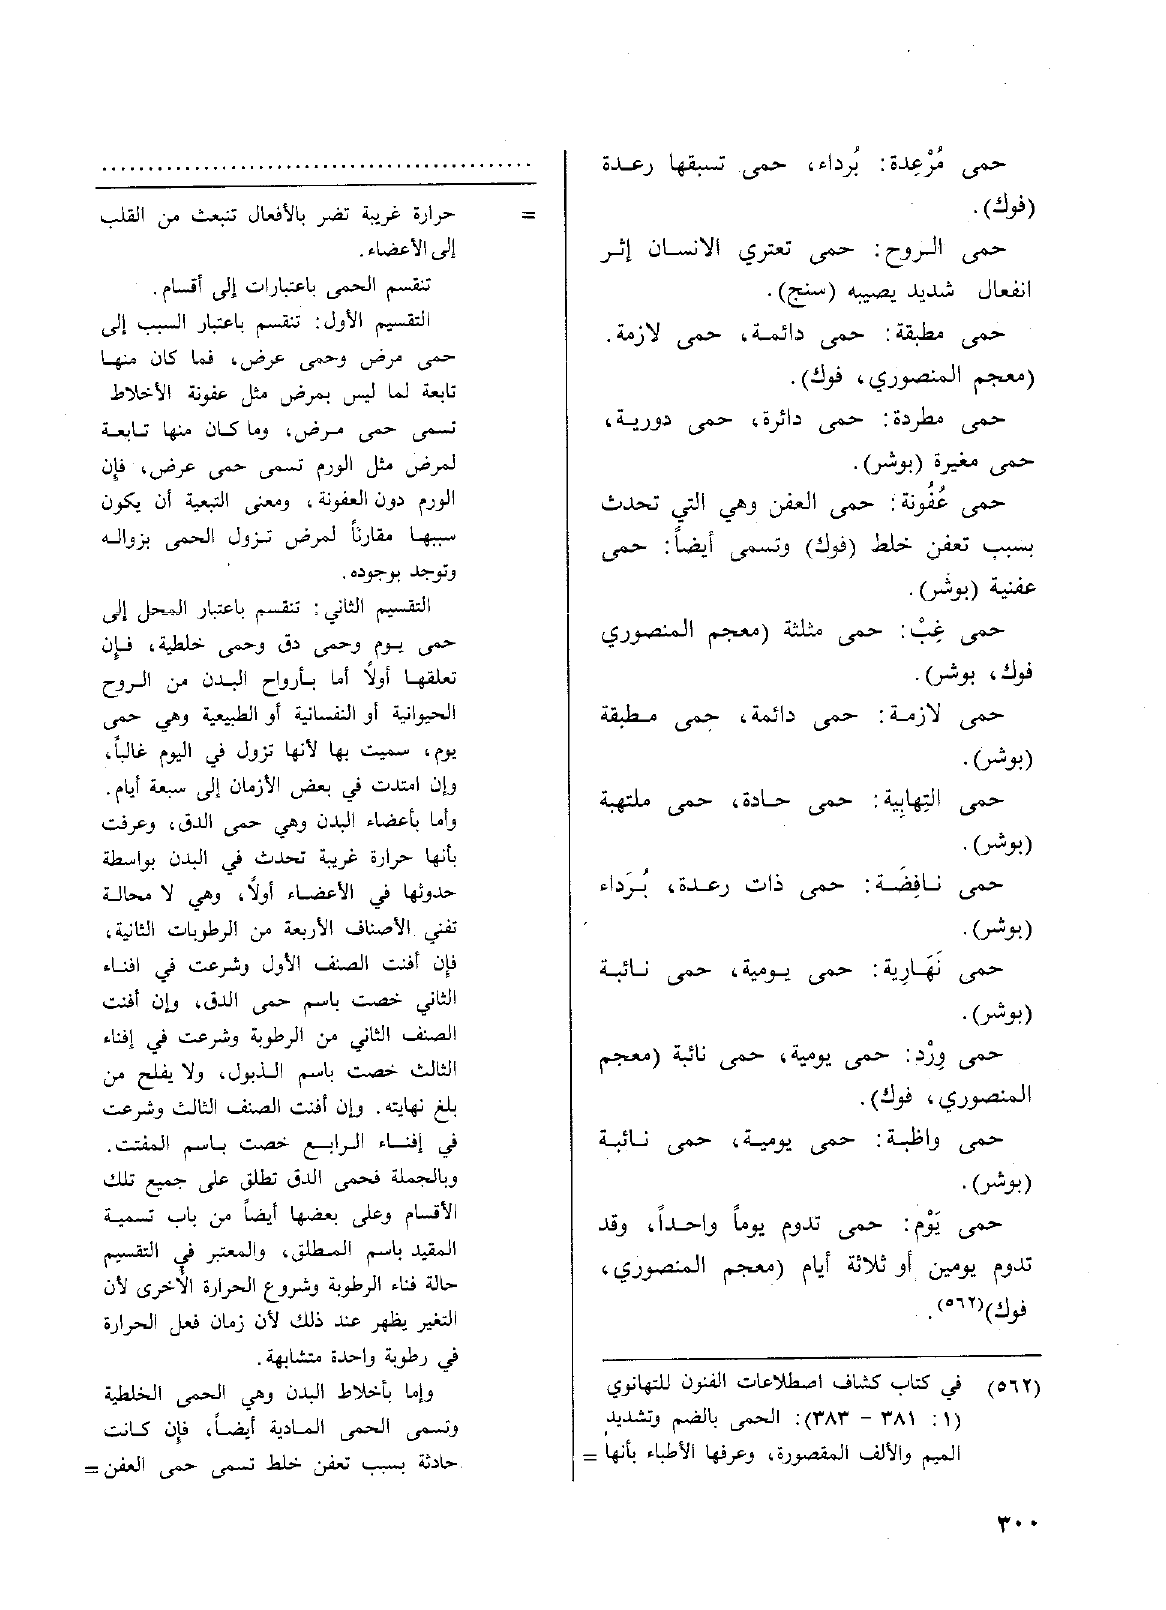 حمى مُرْعِدة: بُرداء، حمى تسبقها رعدة
(فوك).
حمى الروح: حمى تعتري الانسان إثر
انفعال شديد يصيبه (سنج).
حمى مطبقة: حمى دائمة، حمى لازمة.
(معجم المنصوري، فوك).
حمى مطردة: حمى دائرة، حمى دورية،
حمى مغيرة (بوشر).
حمى عُفُونة: حمى العفن وهي التي تحدث
بسبب تعفن خلط (فوك) وتسمى أيضاً: حمى
عفنية (بوشر).
حمى غِبْ: حمى مثلثة (معجم المنصوري
فوك، بوشر).
حمى لازمة: حمى دائمة، حمى مطبقة
(بوشر).
حمى التِهابِية: حمى حادة، حمى ملتهبة
(بوشر).
حمى نافِضَة: حمى ذات رعدة، بُرَداء
(بوشر).
حمى نَهَارية: حمى يومية، حمى نائبة
(بوشر).
حمى وِرْد: حمى يومية، حمى نائبة (معجم
المنصوري، فوك).
حمى واظبة: حمى يومية، حمى نائبة
(بوشر).
حمى يَوْم: حمى تدوم يوماً واحداً، وقد
تدوم يومين أو ثلاثة أيام (معجم المنصوري،
فوك)(٥٦٢).
(٥٦٢) في كتاب كشاف اصطلاعات الفنون للتهانوي
(١: ٣٨١ - ٣٨٣): الحمى بالضم وتشديد
الميم والألف المقصورة، وعرفها الأطباء بأنها =
.......................................................
= حرارة غريبة تضر بالأفعال تنبعث من القلب
إلى الأعضاء.
تنقسم الحمى باعتبارات إلى أقسام.
التقسيم الأول: تنقسم باعتبار السبب إلى
حمى مرض وحمى عرض، فما كان منها
تابعة لما ليس بمرض مثل عفونة الأخلاط
تسمى حمى مرض، وما كان منها تابعة
لمرض مثل الورم تسمى حمى عرض، فإن
الورم دون العفونة، ومعنى التبعية أن يكون
سببها مقارناً لمرض تزول الحمى بزواله
وتوجد بوجوده.
التقسيم الثاني: تنقسم باعتبار المحل إلى
حمى يوم وحمى دق وحمى خلطية، فإن
تعلقها أولاً أما بأرواح البدن من الروح
الحيوانية أو النفسانية أو الطبيعية وهي حمى
يوم، سميت بها لأنها تزول في اليوم غالباً،
وإن امتدت في بعض الأزمان إلى سبعة أيام.
وأما بأعضاء البدن وهي حمى الدق، وعرفت
بأنها حرارة غريبة تحدث في البدن بواسطة
حدوثها في الأعضاء أولاً، وهي لا محالة
تفني الأصناف الأربعة من الرطوبات الثانية،
فإن أفنت الصنف الأول وشرعت في افناء
الثاني خصت باسم حمى الدق، وإن أفنت
الصنف الثاني من الرطوبة وشرعت في إفناء
الثالث خصت باسم الذبول، ولا يفلح من
بلغ نهايته. وإن أفنت الصنف الثالث وشرعت
في إفناء الرابع خصت باسم المفتت.
وبالجملة فحمى الدق تطلق على جميع تلك
الأقسام وعلى بعضها أيضاً من باب تسمية
المقيد باسم المطلق، والمعتبر في التقسيم
حالة فناء الرطوبة وشروع الحرارة الأخرى لأن
التغير يظهر عند ذلك لأن زمان فعل الحرارة
في رطوبة واحدة متشابهة.
وإما بأخلاط البدن وهي الحمى الخلطية
وتسمى الحمى المادية أيضاً، فإن كانت
حادثة بسبب تعفن خلط تسمى حمى العفن =
٣٠٠